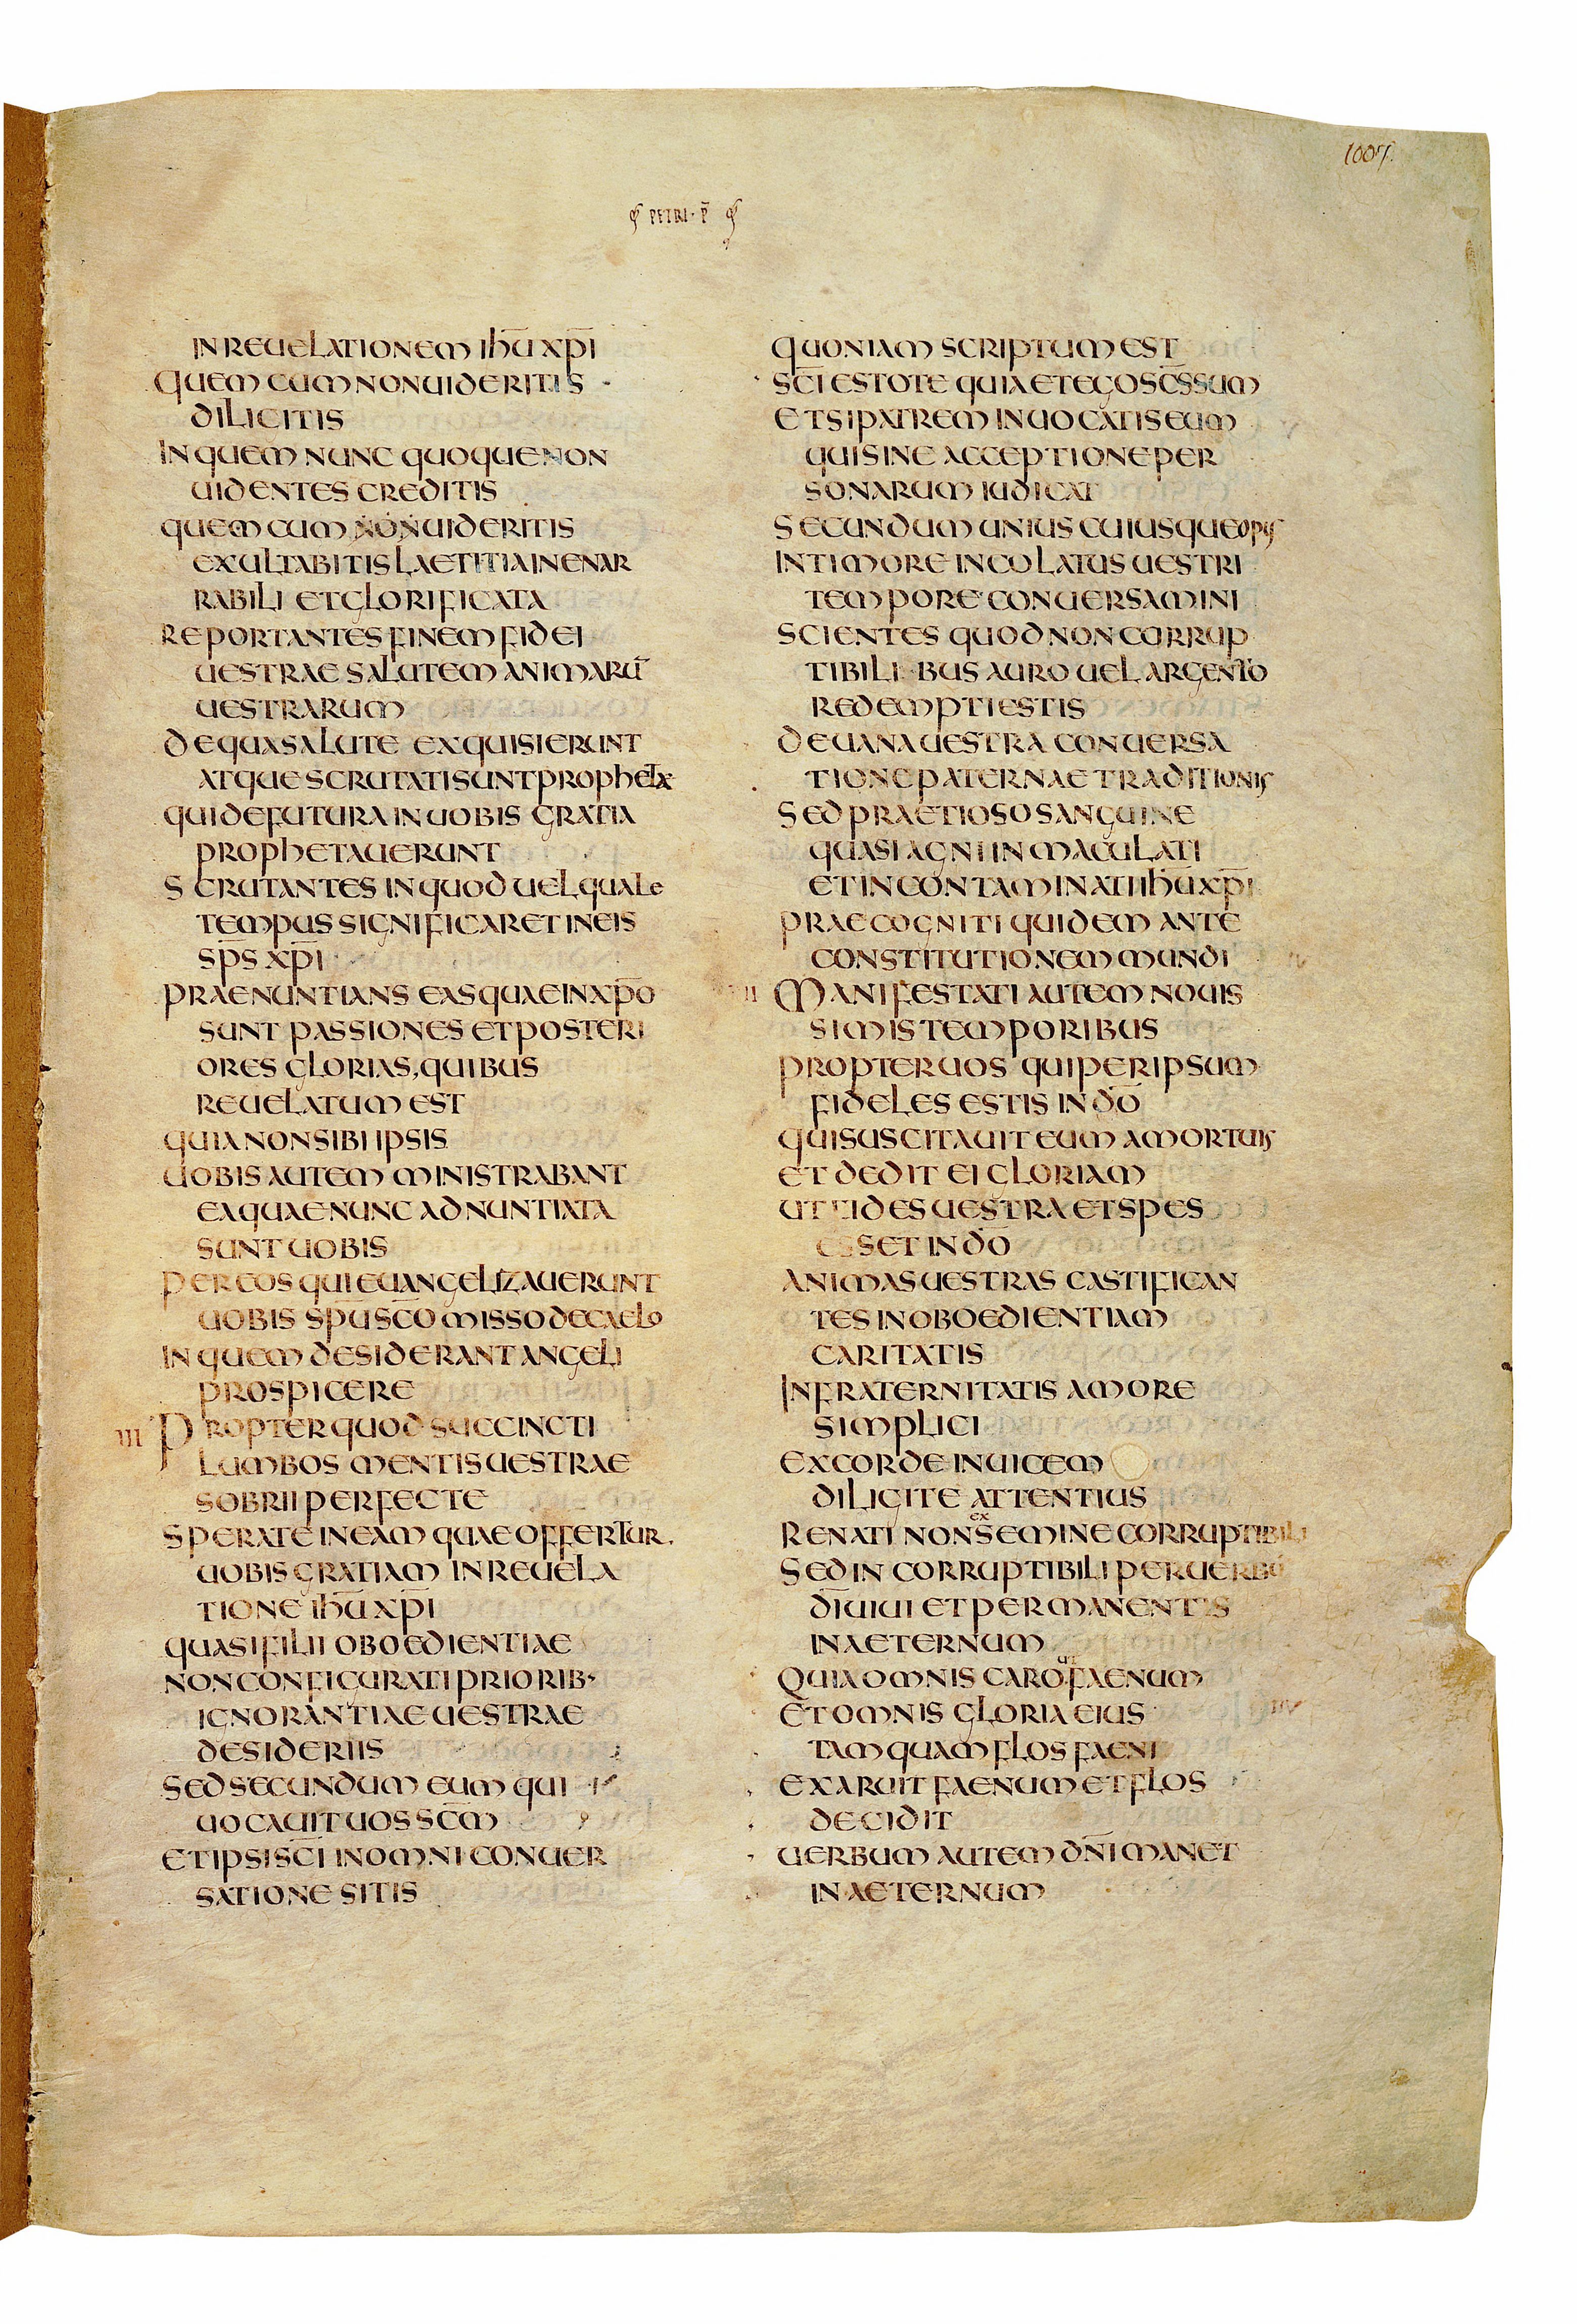 1007
PETRI · P̄
IN REUELATIONEM IHŪ XP̄I
QUEM CUM NON UIDERITIS
DILIGITIS
IN QUEM NUNC QUOQUE NON
UIDENTES CREDITIS
QUEM CUM NON UIDERITIS
EXULTABITIS LAETITIA INENAR
RABILI ET GLORIFICATA
REPORTANTES FINEM FIDEI
UESTRAE SALUTEM ANIMARŪ
UESTRARUM
DE QUA SALUTE EXQUISIERUNT
ATQUE SCRUTATI SUNT PROPHETAE
QUI DE FUTURA IN UOBIS GRATIA
PROPHETAUERUNT
SCRUTANTES IN QUOD UEL QUALE
TEMPUS SIGNIFICARET IN EIS
SP̄S XP̄I
PRAENUNTIANS EAS QUAE IN XP̄O
SUNT PASSIONES ET POSTERI
ORES GLORIAS, QUIBUS
REUELATUM EST
QUIA NON SIBI IPSIS
UOBIS AUTEM MINISTRABANT
EA QUAE NUNC ADNUNTIATA
SUNT UOBIS
PER EOS QUI EUANGELIZAUERUNT
UOBIS SP̄U SC̄O MISSO DE CAELO
IN QUEM DESIDERANT ANGELI
PROSPICERE
III PROPTER QUOD SUCCINCTI
LUMBOS MENTIS UESTRAE
SOBRII PERFECTE
SPERATE IN EAM QUAE OFFERTUR.
UOBIS GRATIAM IN REUELA
TIONE IHŪ XP̄I
QUASI FILII OBOEDIENTIAE
NON CONFIGURATI PRIORIB·
IGNORANTIAE UESTRAE
DESIDERIIS
SED SECUNDUM EUM QUI
UOCAUIT UOS SC̄M
ET IPSI SC̄I IN OMNI CONUER
SATIONE SITIS
QUONIAM SCRIPTUM EST
SC̄I ESTOTE QUIA ET EGO SC̄S SUM
ET SI PATREM INUOCATIS EUM
QUI SINE ACCEPTIONE PER
SONARUM IUDICAT
SECUNDUM UNIUSCUIUSQUE OPUS
IN TIMORE INCOLATUS UESTRI
TEMPORE CONUERSAMINI
SCIENTES QUOD NON CORRUP
TIBILIBUS AURO UEL ARGENTO
REDEMPTI ESTIS
DE UANA UESTRA CONUERSA
TIONE PATERNAE TRADITIONIS
SED PRAETIOSO SANGUINE
QUASI AGNI INMACULATI
ET INCONTAMINATI IHŪ XP̄I
PRAECOGNITI QUIDEM ANTE
CONSTITUTIONEM MUNDI
II MANIFESTATI AUTEM NOUIS
SIMIS TEMPORIBUS
PROPTER UOS QUI PER IPSUM
FIDELES ESTIS IN DŌ
QUI SUSCITAUIT EUM A MORTUIS
ET DEDIT EI GLORIAM
UT FIDES UESTRA ET SPES
ESSET IN DŌ
ANIMAS UESTRAS CASTIFICAN
TES IN OBOEDIENTIAM
CARITATIS
IN FRATERNITATIS AMORE
SIMPLICI
EX CORDE INUICEM
DILIGITE ATTENTIUS
RENATI NON ex SEMINE CORRUPTIBILI
SED INCORRUPTIBILI PER UERBŪ
DĪ UIUI ET PERMANENTIS
IN AETERNUM
QUIA OMNIS CARO ut FAENUM
ET OMNIS GLORIA EIUS
TAMQUAM FLOS FAENI
EXARUIT FAENUM ET FLOS
DECIDIT
UERBUM AUTEM DN̄I MANET
IN AETERNUM